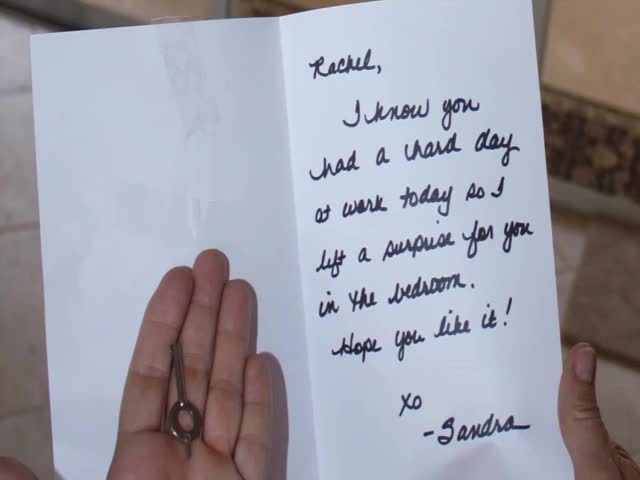 Rachel,
I know you
had a hard day
at work today so I
left a surprise for you
in the bedroom.
Hope you like it!
xo
-Sandra